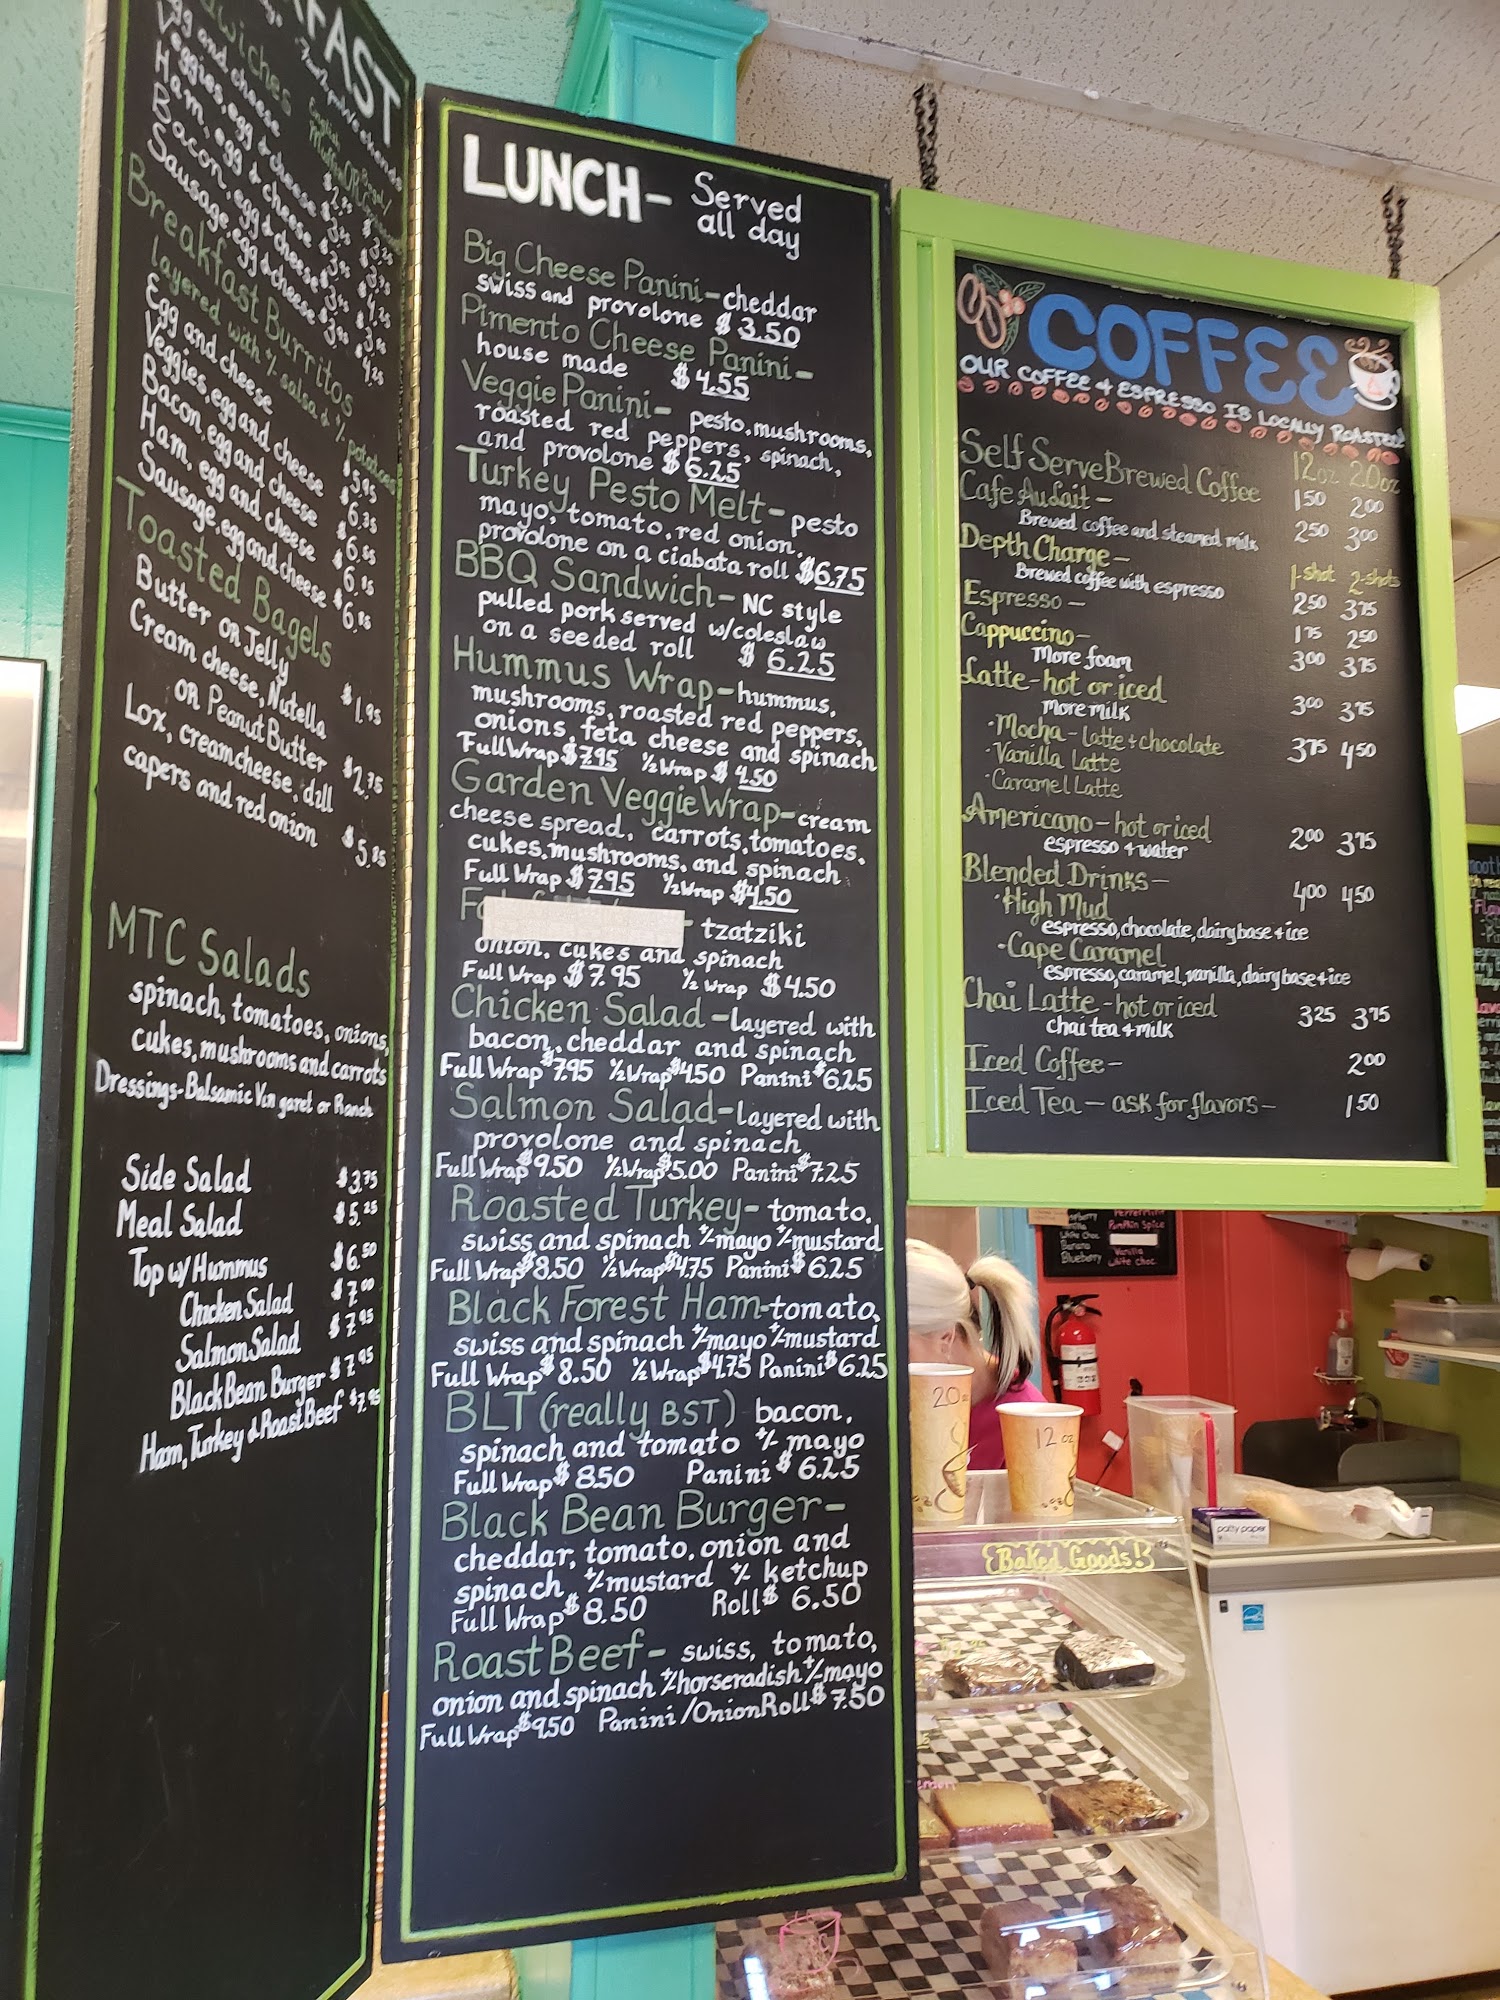 FAST
Egg and cheese
Veggies, egg & cheese
Ham, egg & cheese
Bacon, egg & cheese
Sausage, egg & cheese
Breakfast Burritos
layered with +/- salsa & +/- potatoes
Egg and cheese $5.95
Veggies, egg and cheese
Bacon, egg and cheese
Ham, egg and cheese
Sausage, egg and cheese
Toasted Bagels
Butter OR Jelly $1.95
Cream cheese, Nutella
OR Peanut Butter $2.75
Lox, creamcheese, dill
capers and red onion
MTC Salads
spinach, tomatoes, onions,
cukes, mushrooms and carrots
Dressings-Balsamic Vin garet or Ranch
Side Salad $3.75
Meal Salad $5.25
Top w/ Hummus $6.50
Chicken Salad $7.00
Salmon Salad $7.95
Black Bean Burger $7.95
Ham, Turkey & Roast Beef $7.95
LUNCH- Served
all day
Big Cheese Panini-cheddar
swiss and provolone $3.50
Pimento Cheese Panini-
house made $4.55
Veggie Panini- pesto, mushrooms,
roasted red peppers, spinach,
and provolone $6.25
Turkey Pesto Melt- pesto
mayo, tomato, red onion.
provolone on a ciabata roll $6.75
BBQ Sandwich- NC style
pulled pork served w/coleslaw
on a seeded roll $6.25
Hummus Wrap-hummus,
mushrooms, roasted red peppers,
onions, feta cheese and spinach
Full Wrap $7.95 1/2 Wrap $4.50
Garden Veggie Wrap-cream
cheese spread, carrots, tomatoes,
cukes, mushrooms, and spinach
Full Wrap $7.95 1/2 Wrap $4.50
- tzatziki
onion, cukes and spinach
Full Wrap $7.95 1/2 Wrap $4.50
Chicken Salad-Layered with
bacon, cheddar and spinach
Full Wrap $7.95 1/2 Wrap $4.50 Panini $6.25
Salmon Salad-Layered with
provolone and spinach
Full Wrap $9.50 1/2 Wrap $5.00 Panini $7.25
Roasted Turkey- tomato,
swiss and spinach +/-mayo +/-mustard
Full Wrap $8.50 1/2 Wrap $4.75 Panini $6.25
Black Forest Ham-tomato,
swiss and spinach +/-mayo +/-mustard
Full Wrap $8.50 1/2 Wrap $4.75 Panini $6.25
BLT (really BST) bacon,
spinach and tomato +/- mayo
Full Wrap $8.50 Panini $6.25
Black Bean Burger-
cheddar, tomato, onion and
spinach +/-mustard +/- ketchup
Full Wrap $8.50 Roll $6.50
Roast Beef- swiss, tomato,
onion and spinach +/-horseradish +/-mayo
Full Wrap $9.50 Panini/Onion Roll $7.50
COFFEE
OUR COFFEE & ESPRESSO IS LOCALLY ROASTED!
Self Serve Brewed Coffee 12oz 20oz
1.50 2.00
Cafe Au Lait -
Brewed coffee and steamed milk 2.50 3.00
Depth Charge - 1-shot 2-shots
Brewed coffee with espresso 2.50 3.75
Espresso - 1.75 2.50
Cappuccino- 3.00 3.75
More foam
Latte-hot or iced 3.00 3.75
More milk
·Mocha-latte+chocolate 3.75 4.50
·Vanilla Latte
·Caramel Latte
Americano-hot or iced 2.00 3.75
espresso + water
Blended Drinks- 4.00 4.50
·High Mud
espresso, chocolate, dairy base + ice
·Cape Caramel
espresso, caramel, vanilla, dairy base + ice
Chai Latte-hot or iced 3.25 3.75
chai tea + milk
Iced Coffee- 2.00
Iced Tea - ask for flavors- 1.50
Peppermint
Pumpkin Spice
Vanilla
White Choc.
Vanilla
White Choc
Banana
Blueberry
20 oz
12 oz
patty paper
Baked Goods!